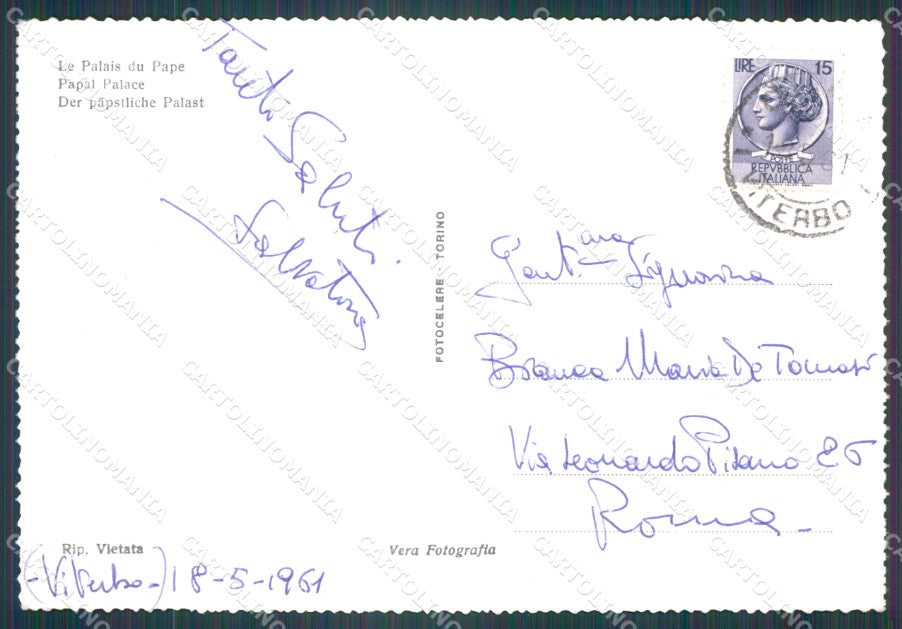 Le Palais du Pape
Papal Palace
Der päpstliche Palast
Tanti Saluti
Salvatore
LIRE 15
POSTE
REPVBBLICA
ITALIANA
VITERBO
FOTOCELERE TORINO
Gent.ma Signorina
Bianca Maria De Tomasi
Via Leonardo Pisano 25
Roma
Rip. Vietata
Vera Fotografia
(Viterbo) 18-5-1961
CARTOLINOMANIA